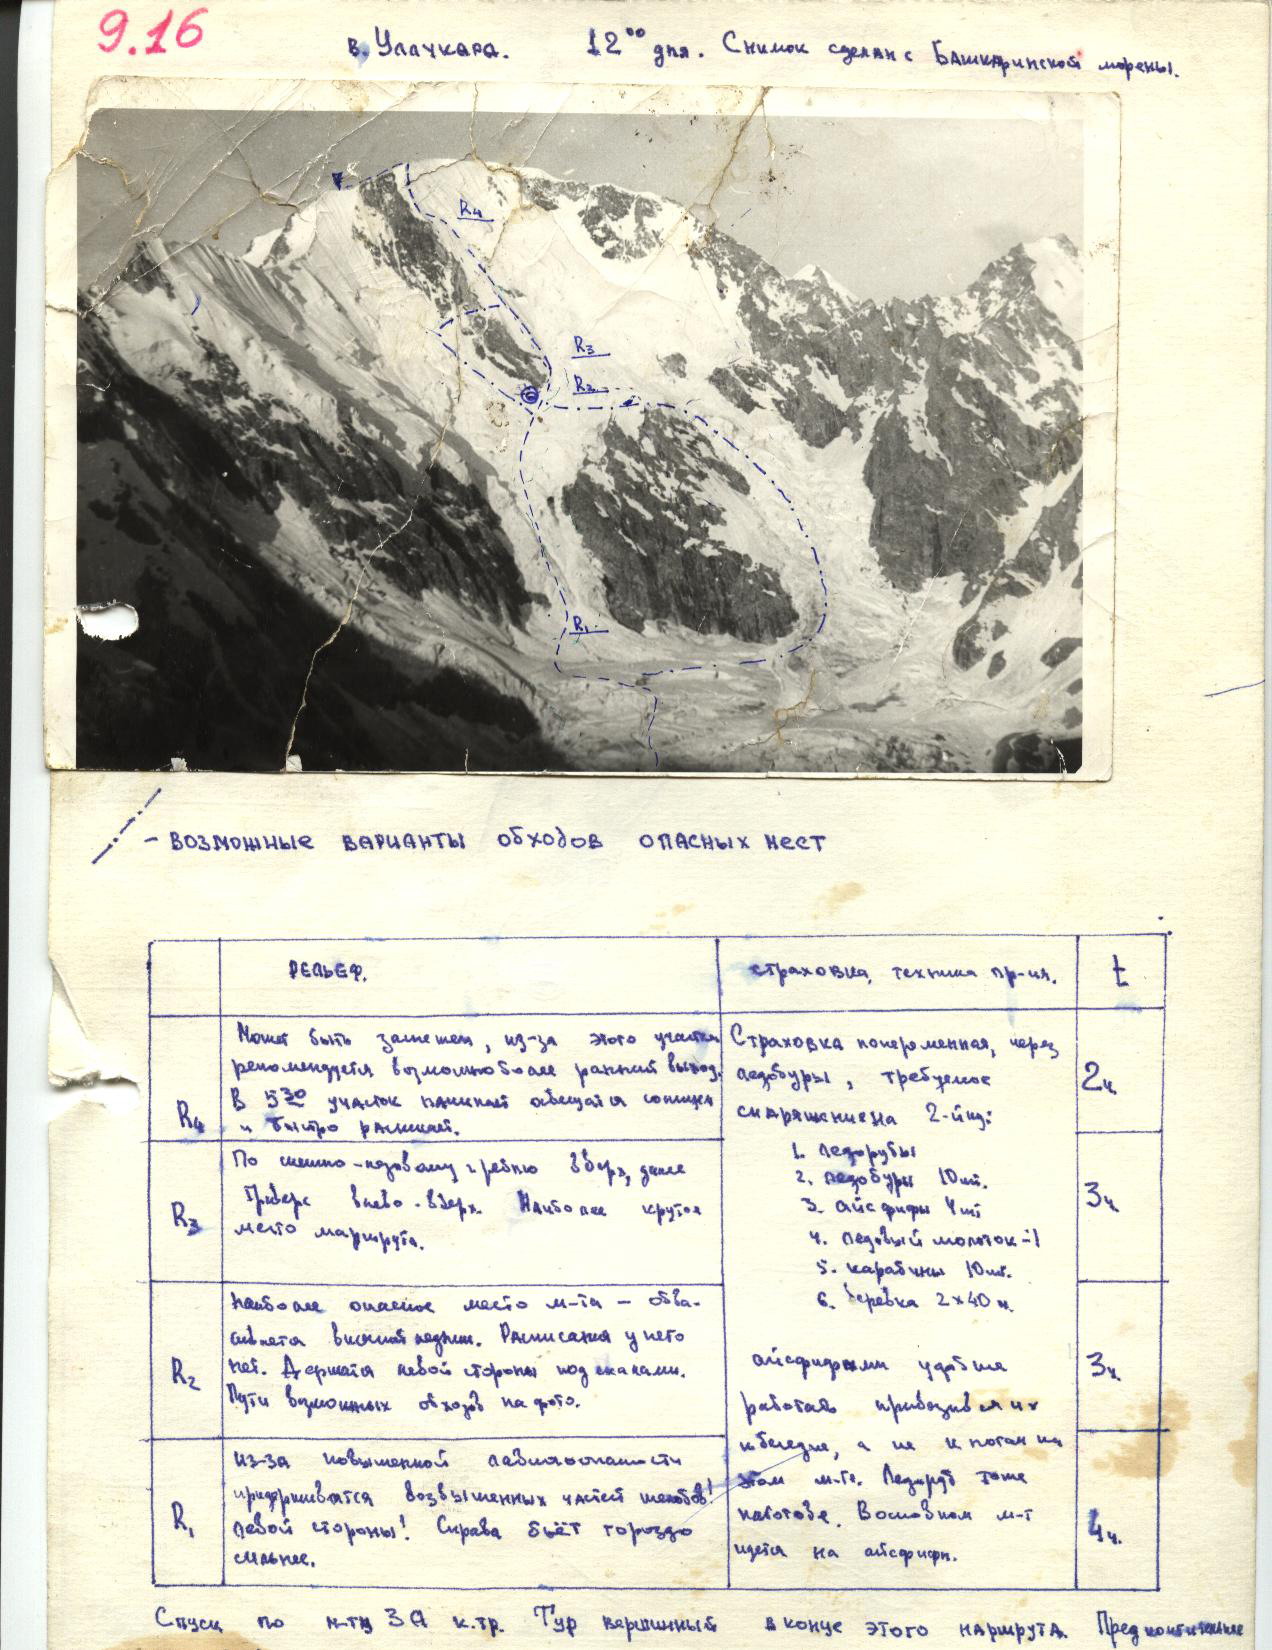 9.16
в. Уллукара. 12⁰⁰ дня. Снимок сделан с Башкаринской морены.
R4
R3
R2
R1
- возможные варианты обходов опасных мест
Рельеф. страховка, техника пр-ия. t
R4
Может быть заснежен, из-за этого участка
рекомендуется возможно более ранний выход.
В 5³⁰ участок начинает освещатся солнцем
и быстро раскисает.
R3
По снежно-ледовому гребню вверх, далее
траверс влево-вверх. Наиболее крутое
место маршрута.
R2
Наиболее опасное место м-та - обва-
ливается висячий ледник. Расписания у него
нет. Держатся левой стороны под скалами.
Пути возможных обходов на фото.
R1
Из-за повышенной лавиноопасности
придерживатся возвышенных частей желобов!
левой стороны! Справа бьёт гороздо
сильнее.
Страховка попеременная, через
ледобуры, требуемое
снаряжение на 2-йку:
1. ледорубы
2. ледобуры 10шт.
3. айсфифы 4шт
4. ледовый молоток-1
5. карабины 10шт.
6. веревка 2х40м.
айсфифами удобнее
работать
а не к ногам на
этом м-те. Ледоруб тоже
наготове. Восновном м-т
идется на айсфифы.
2ч.
3ч.
3ч.
4ч.
Спуск по м-ту 3А к.тр. Тур вершинный в конце этого маршрута.